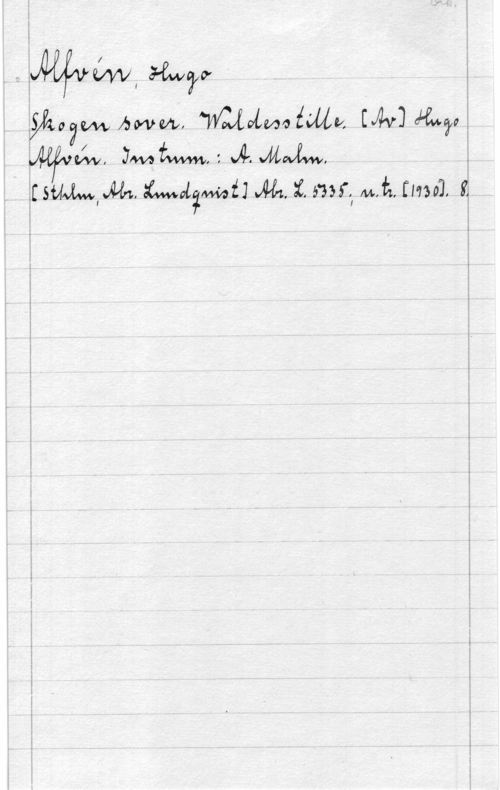 Alfvén, Hugo
Skogen sover. Waldesstille. [Av] Hugo
Alfvén. Instrum.: A. Malm.
[Sthlm, Abr. Lundqvist] Abr. L. 5335, u. tr. [1930]. 8.